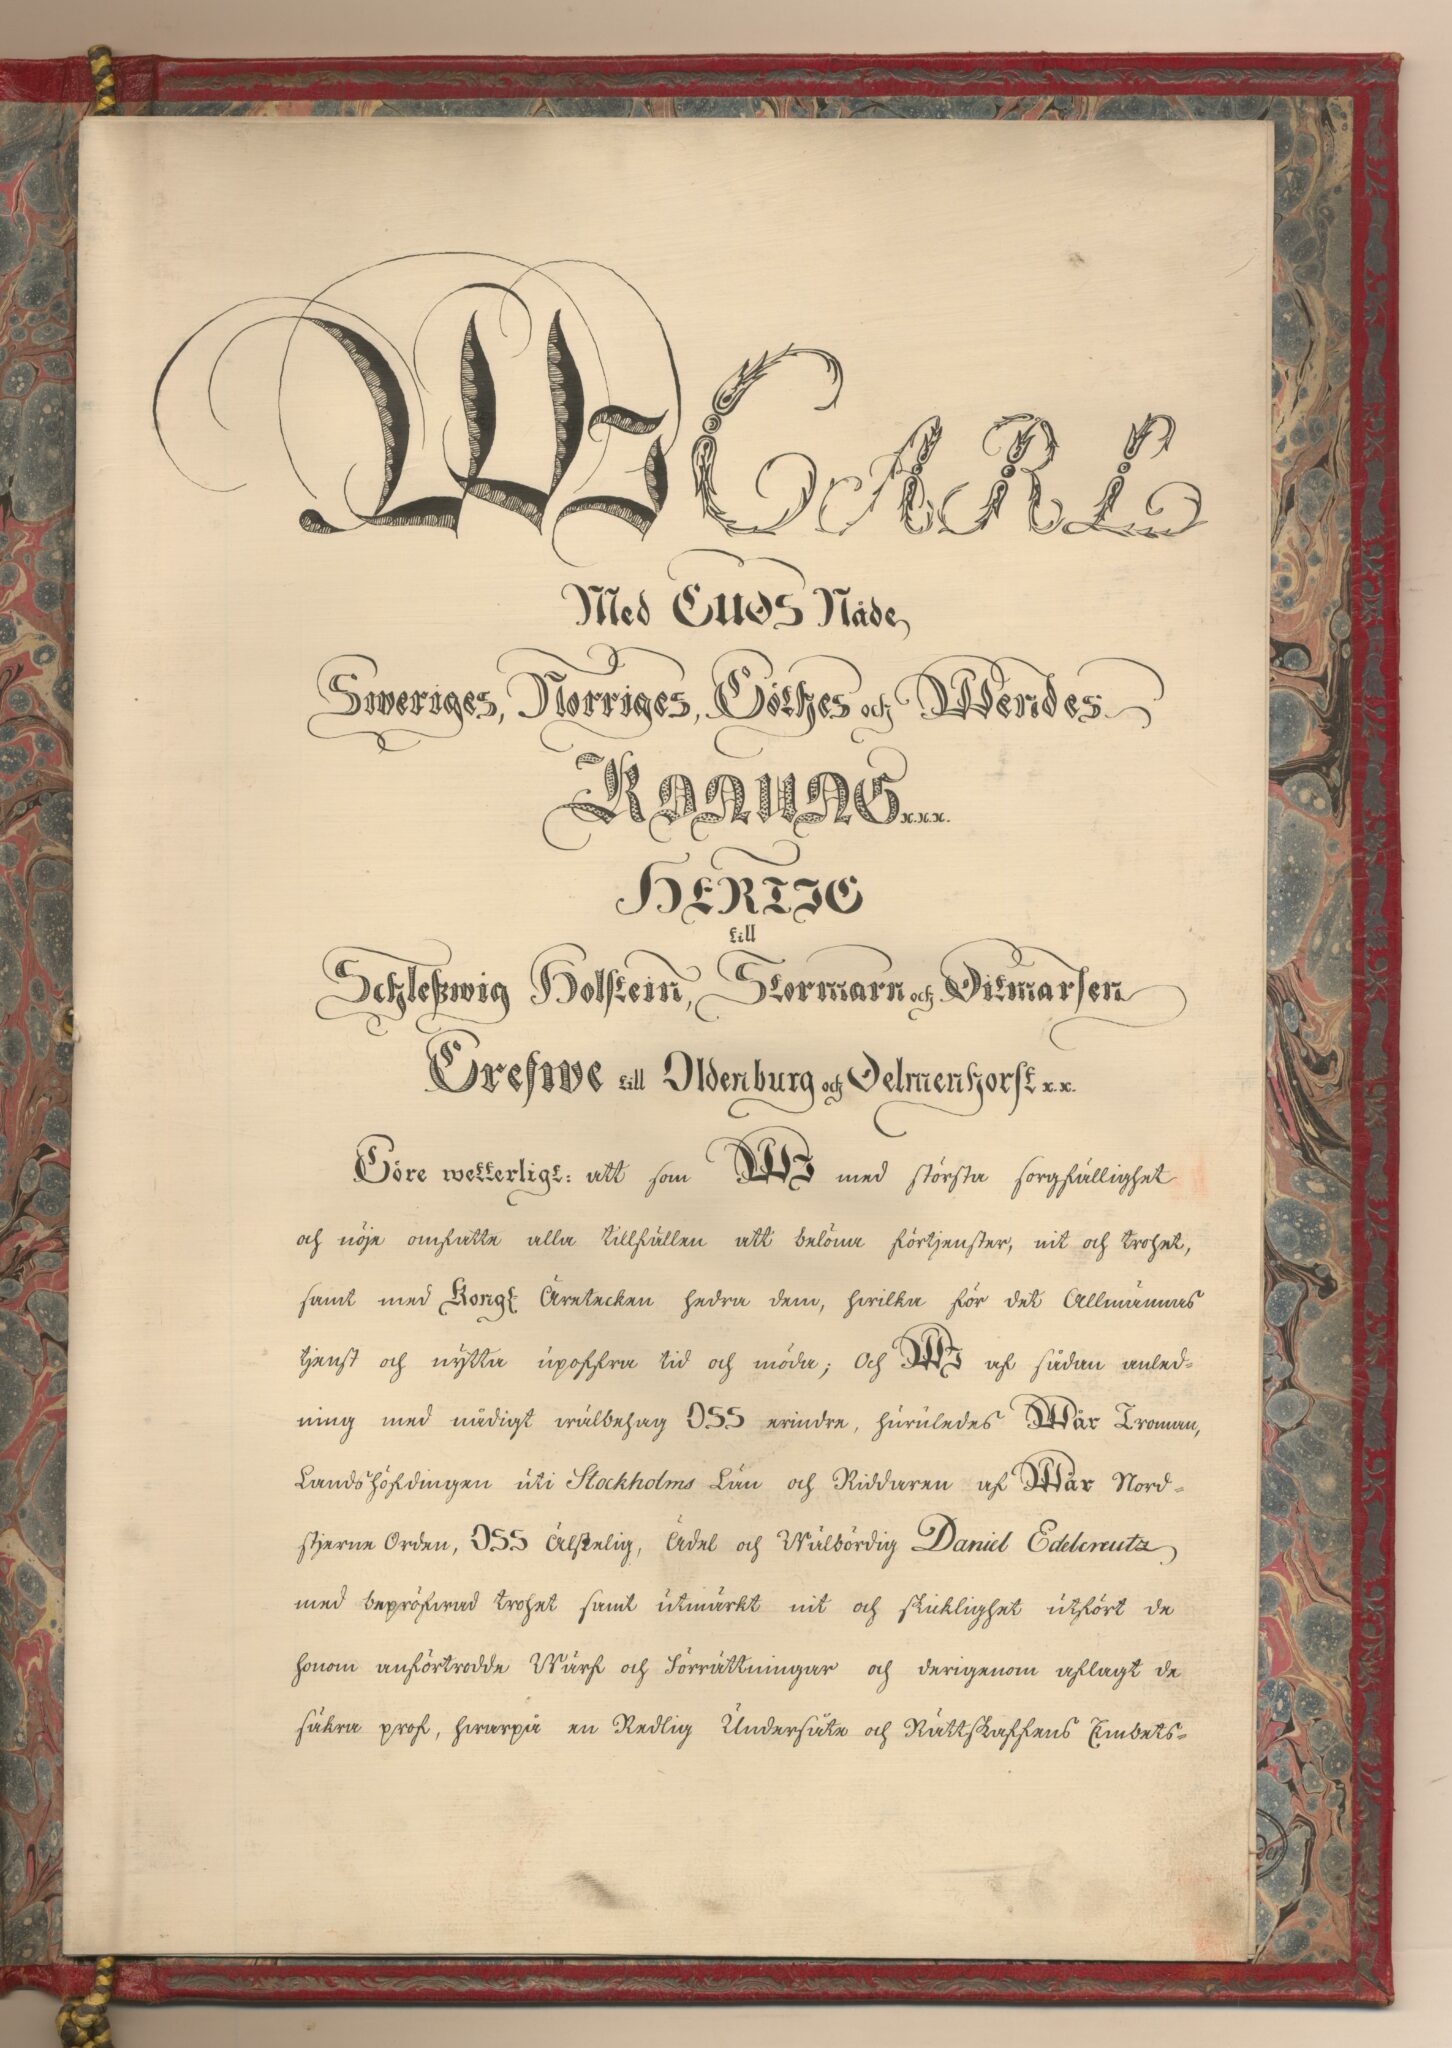 Wi CARL
Med GUDS Nåde,
Sweriges, Norriges, Göthes och Wendes
KONUNG x.x.x.
HERTIG
till
Schleßwig Holstein, Stormarn och Ditmarsen
Grefwe till Oldenburg och Delmenhorst x.x.
Göre wetterligt: att som WJ med största sorgfällighet
och nöje omfatte alla tillfällen att belöna förtjenster, nit och trohet,
samt med Kongl Äretecken hedra dem, hwilka för det Allmännas
tjenst och nytta upoffra tid och möda; Och WJ af sådan anled-
ning med nådigt wälbehag OSS erindre, huruledes Wår Troman,
Landshöfdingen uti Stockholms Län och Riddaren af Wår Nord-
stjerne Orden, OSS Älskelig, Ädel och Wälbördig Daniel Edelcreutz
med bepröfwad trohet samt utmärkt nit och skicklighet utfört de
honom anförtrodde Wärf och Förrättningar och derigenom aflagt de
säkra prof, hwarpå en Redlig Undersåte och Rättskaffens Embets-